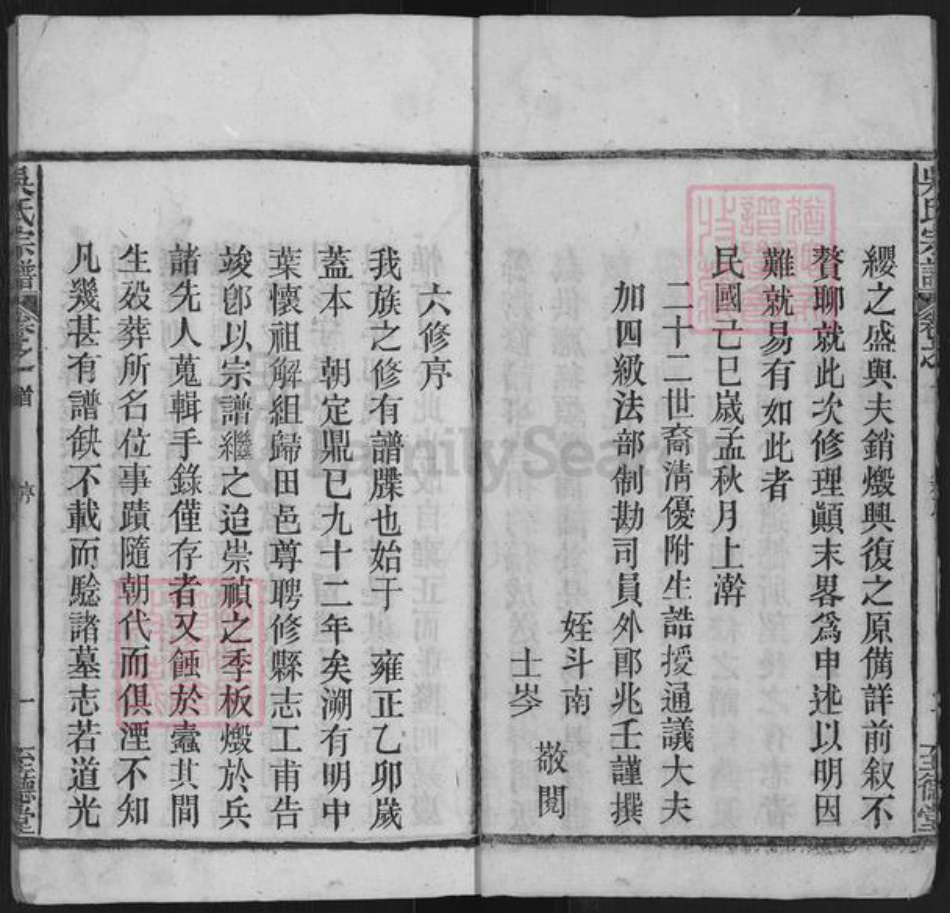 纓之盛與夫銷燬興復之原僃詳前叙不
贅聊就此次修理顚末畧爲申述以明因
難就易有如此者
民國己巳嵗孟秋月上澣
二十二世裔淸優附生誥授通議大夫
加四級法部制勘司員外郎兆壬謹撰
姪斗南
士岑
敬閱
六修序
我族之修有譜牒也始于 雍正乙卯歲
蓋本 朝定鼎已九十二年矣溯有明中
葉懷祖解組歸田邑尊聘修縣志工甫告
竣卽以宗譜繼之迨崇禎之季板燬於兵
諸先人蒐輯手錄僅存者又蝕於蠹其間
生殁葬所名位事蹟隨朝代而俱湮不知
凡幾甚有譜缺不載而騐諸墓志若道光
吳氏宗譜
卷之一
譜
序
一
至德堂
吳氏宗譜
至德堂
FamilySearch